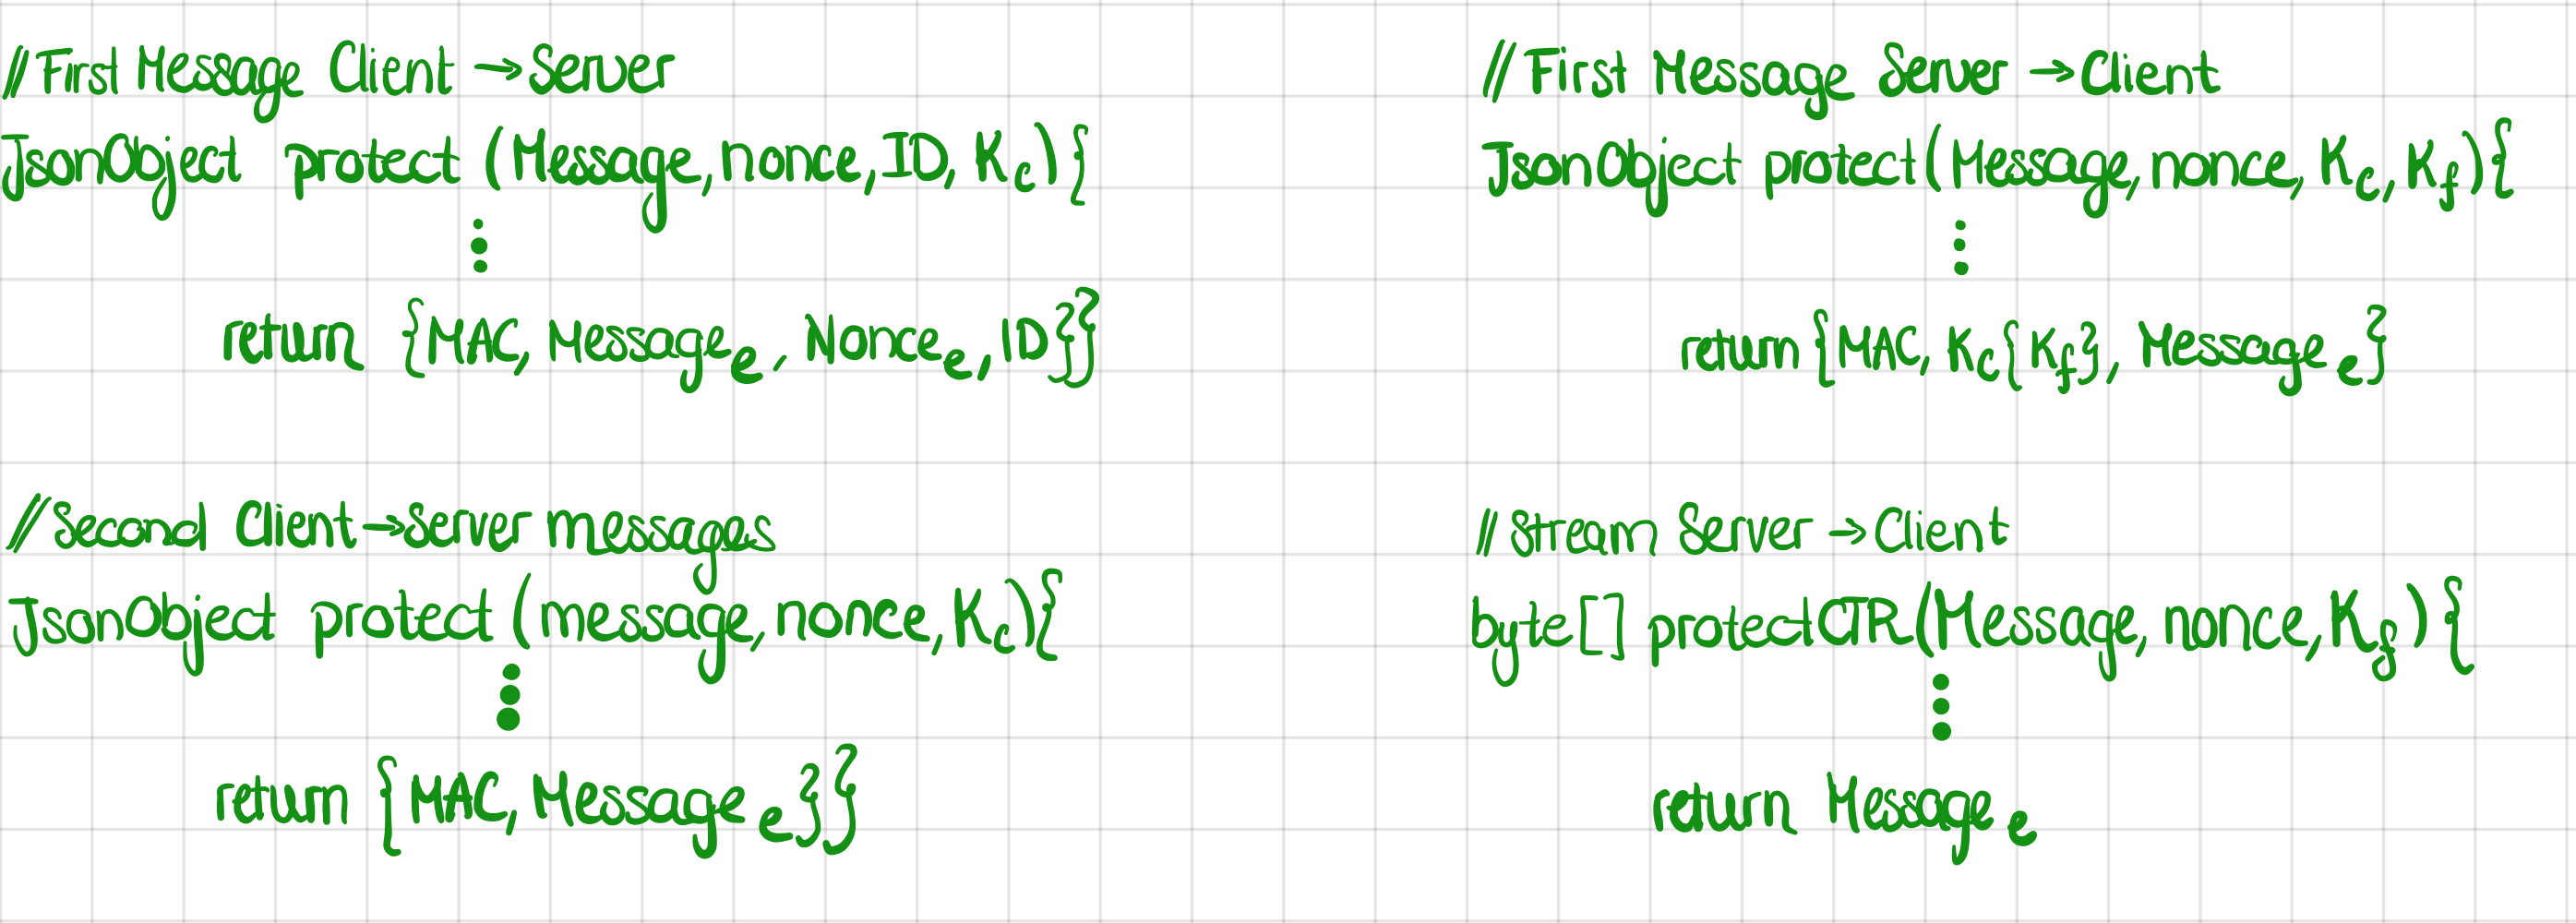 //First Message Client →Server
JsonObject protect (Message, nonce, ID, Kc){
⋮
return {MAC, Messagee, Noncee, ID}}
//Second Client→Server messages
JsonObject protect (message, nonce, Kc){
⋮
return {MAC, Messagee}}
//First Message Server →Client
JsonObject protect(Message, nonce, Kc, Kf){
⋮
return{MAC, Kc{Kf}, Messagee}
//Stream Server →Client
byte[] protectCTR(Message, nonce, Kf){
⋮
return Messagee